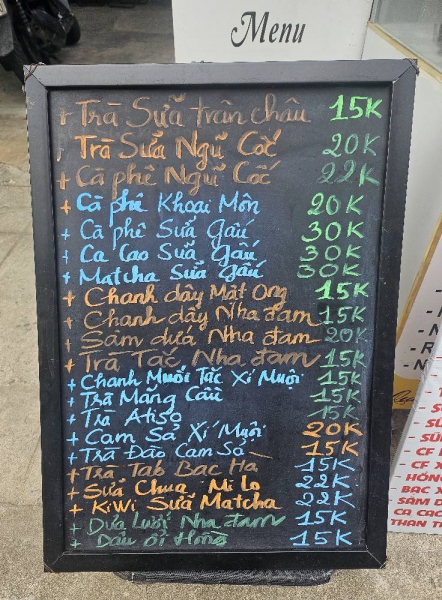 Menu
+ Trà Sữa trân châu 15K
Trà Sữa Ngũ Cốc 20K
+ Cà phê Ngũ Cốc 22K
+ Cà phê Khoai Môn 20K
+ Cà phê Sữa Gấu 30K
+ Ca Cao Sữa Gấu 30K
+ Matcha Sữa gấu 30K
+ Chanh dây Mật Ong 15K
+ Chanh dây Nha đam 15K
+ Sâm dứa Nha đam 20K
+ Trà Tắc Nha đam 15K
+ Chanh Muối Tắc Xí Muội 15K
+ Trà Mãng Cầu 15K
+ Trà Atiso 15K
+ Cam Sả Xí Muội 20K
+ Trà Đào Cam Sả 15K
+ Trà Bạc Hà 15K
+ Sữa Chua Mi Lo 22K
+ KiWi Sữa Matcha 22K
+ Dưa Lưới Nha đam 15K
Dâu ổi Hồng 15K